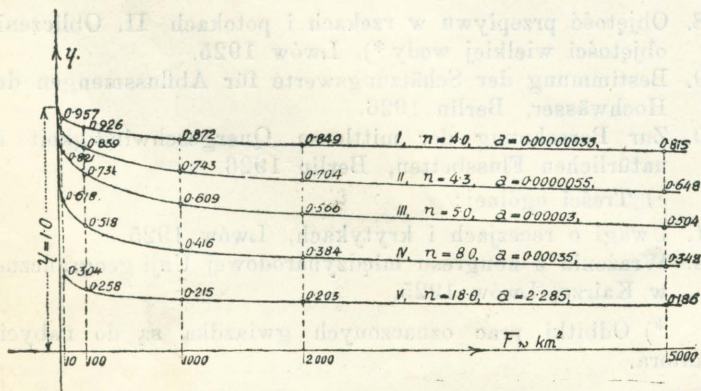 y.
0·957 0·926 0·872 0·849 I, n=4·0, a=0·00000035, 0·815
0·859 0·743 0·704 II, n=4·3, a=0·0000055, 0·648
0·821 0·734 0·609 0·566 III, n=5·0, a=0·00003, 0·504
0·618 0·518 0·416 0·384 IV, n=8·0, a=0·00035, 0·348
0·304 0·258 0·215 0·203 V, n=18·0, a=2·285, 0·186
y=1·0
F, w km²
10 100 1000 2000 5000